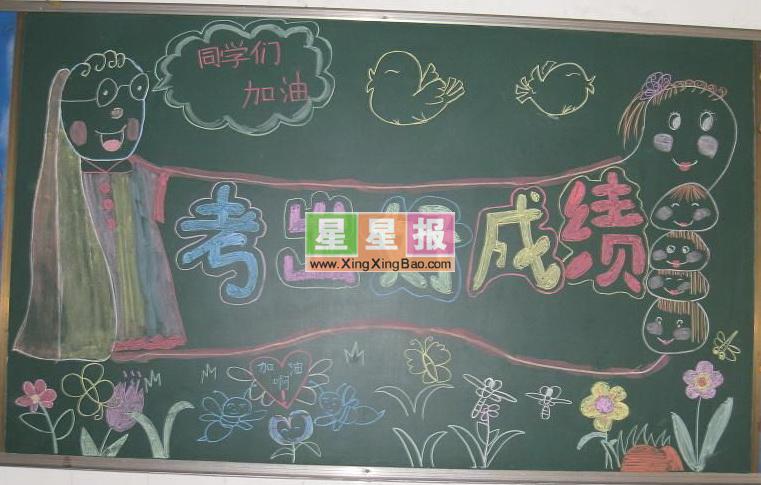 同学们
加油
考出好成绩
星星报
www.XingXingBao.com
加油
啊